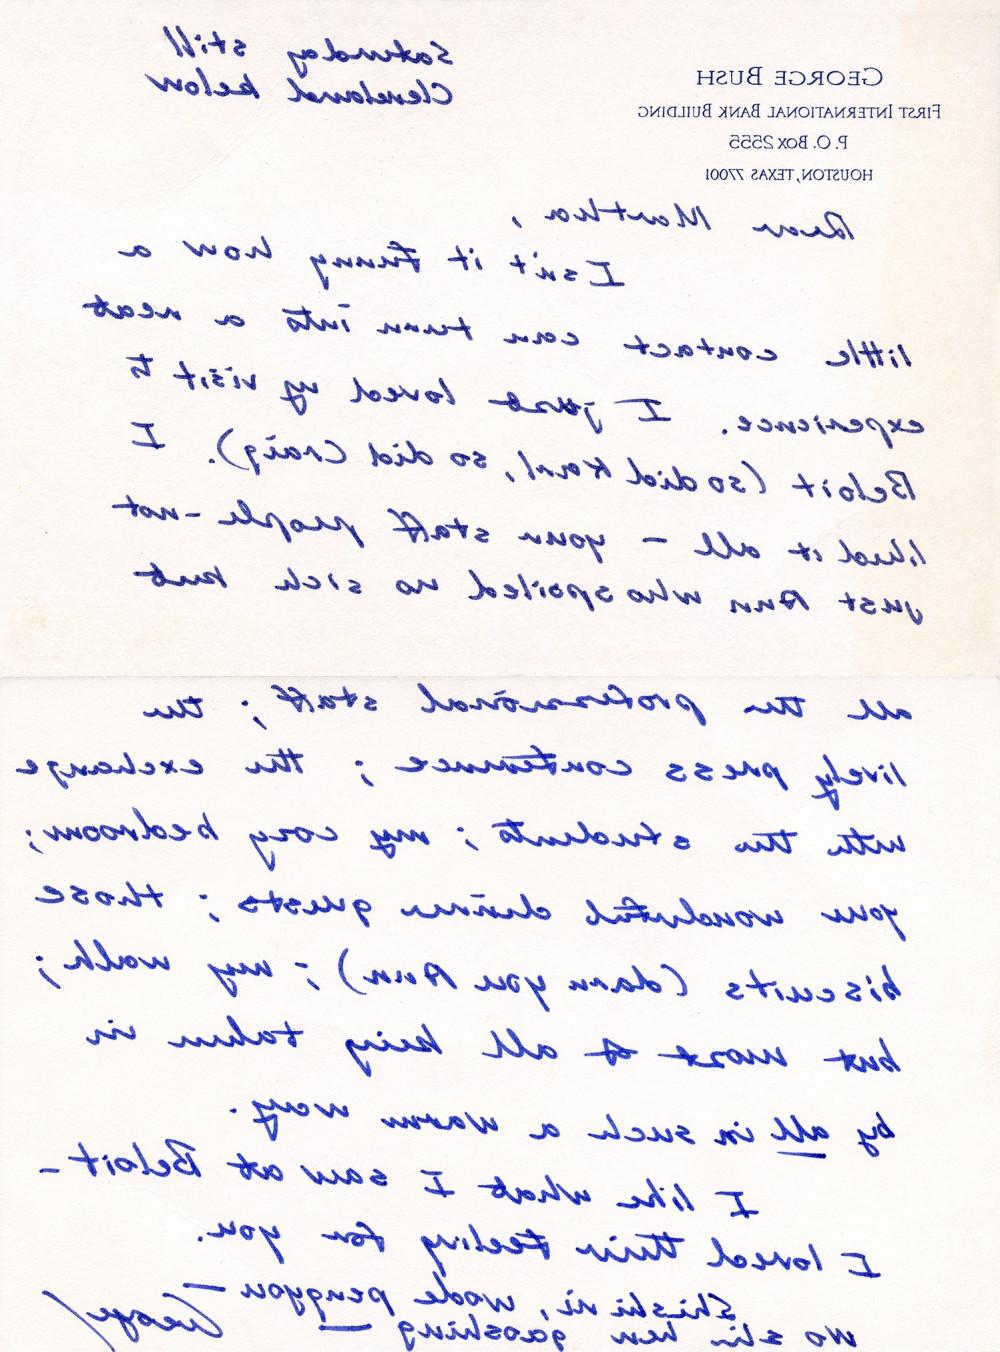 GEORGE BUSH
FIRST INTERNATIONAL BANK BUILDING
P. O. BOX 2555
HOUSTON, TEXAS 77001
Saturday still
Cleveland below
Dear Martha,
Isn't it funny how a
little contact can turn into a neat
experience. I just loved my visit to
Beloit (so did Karl, so did Craig). I
liked it all - your staff people - not
just Ann who spoiled no sich but
all the professional staff; the
lively press conference; the exchange
with the students; my cozy bedroom;
your wonderful dinner guests; those
biscuits (darn you Ann); my walk;
but most of all being taken in
by all in such a warm way.
I like what I saw at Beloit -
I loved their feeling for you.
Shi shi ni, wode pengyou -
Wo shi hen gaoshing -
George